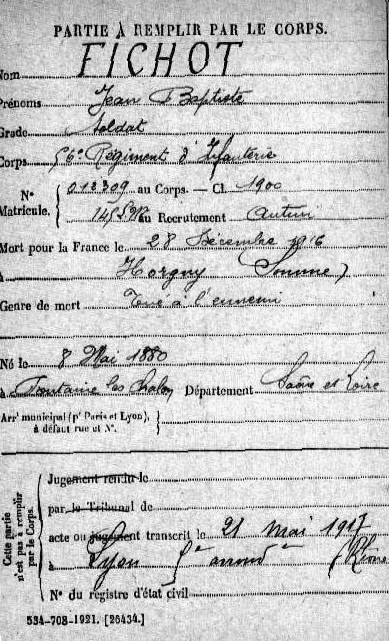 PARTIE À REMPLIR PAR LE CORPS.
Nom FICHOT
Prénoms Jean Baptiste
Grade Soldat
Corps 56e Régiment d'Infanterie
N° Matricule. { 012309 au Corps. — Cl. 1900
au Recrutement Autun
Mort pour la France le 28 Décembre 1916
à Horgny (Somme)
Genre de mort Tué à l'ennemi
Né le 8 Mai 1880
à Fontaine les Chalon Département Saône et Loire
Arrt municipal (pr Paris et Lyon), à défaut rue et N°.
Cette partie n'est pas à remplir par le Corps.
Jugement rendu le
par le Tribunal de
acte ou jugement transcrit le 21 Mai 1917
à Lyon arrondt (Rhône
N° du registre d'état civil
534-708-1921. [26434.]